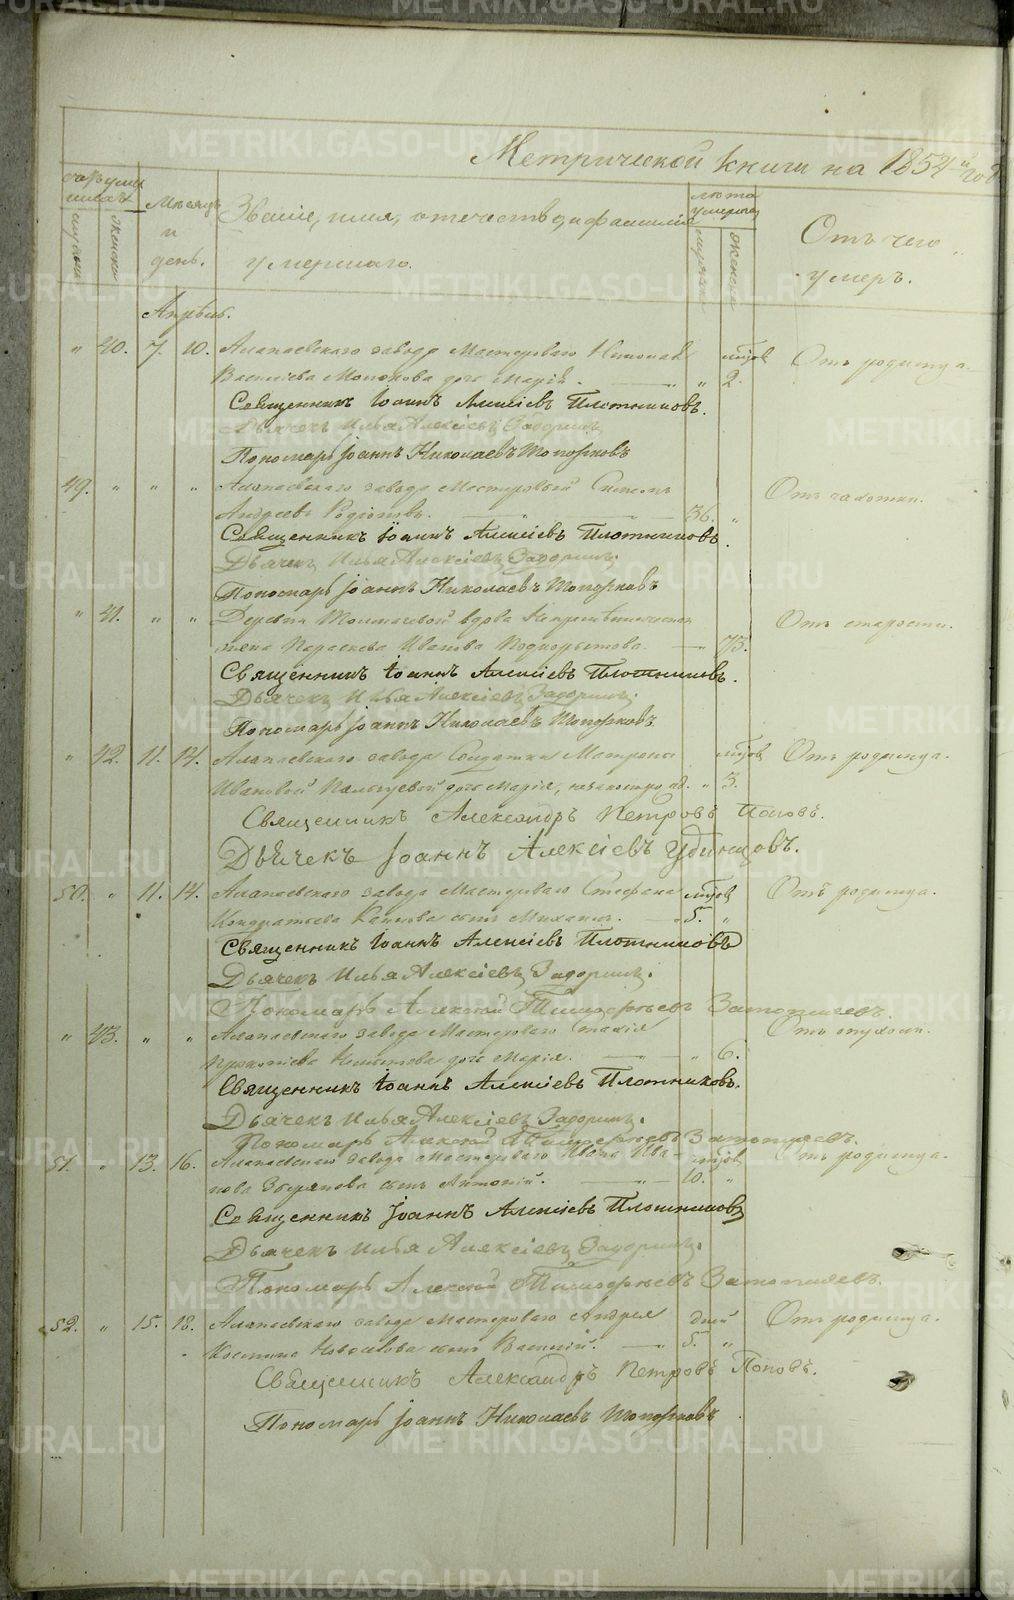 Метрической книги на 1854й год
Счетъ умершихъ
мужеска
женска
Месяцъ и день.
Званіе, имя, отечество, и фамилія умершаго.
Лета умершаго
мужеска
женска
Отъ чего умеръ.
Апрѣль.
" 40. 7. 10. Алапаевскаго завода Мастероваго Николая мцовъ Отъ родимца.
Василіева дочь Марія. " 2.
Священникъ Іоаннъ Алексіевъ Плотниковъ.
Дьячекъ Илья Алексіевъ Задоринъ.
Пономарь Іоаннъ Николаевъ Топорковъ
49. " " " Алапаевскаго завода Мастеровый Отъ чахотки.
Андреевъ Родіоновъ. 36. "
Священникъ Іоаннъ Алексіевъ Плотниковъ.
Дьячекъ Илья Алексіевъ Задоринъ.
Пономарь Іоаннъ Николаевъ Топорковъ
" 41. " " Деревни вдова Отъ старости.
жена Параскева Иванова 75.
Священникъ Іоаннъ Алексіевъ Плотниковъ.
Дьячекъ Илья Алексіевъ Задоринъ.
Пономарь Іоаннъ Николаевъ Топорковъ
" 42. 11. 14. Алапаевскаго завода Солдатки Матроны мцовъ Отъ родимца.
Ивановой дочь Марія, незаконорожд. " 3.
Священникъ Александръ Петровъ Поповъ.
Дьячекъ Іоаннъ Алексіевъ Удинцовъ.
50. " 11. 14. Алапаевскаго завода Мастероваго Стефана мцовъ Отъ родимца.
Кондратьева сынъ Михаилъ. 5. "
Священникъ Іоаннъ Алексіевъ Плотниковъ
Дьячекъ Илья Алексіевъ Задоринъ.
Пономарь Алексей Тимофеевъ
" 43. " " Алапаевскаго завода Мастероваго Отъ опухоли.
Прокопіева дочь Марія. " 6.
Священникъ Іоаннъ Алексіевъ Плотниковъ.
Дьячекъ Илья Алексіевъ Задоринъ.
Пономарь Алексей Тимофеевъ
51. " 13. 16. Алапаевскаго завода Мастероваго Ивана Ива- мцовъ Отъ родимца.
нова сынъ Антоній. 10. "
Священникъ Іоаннъ Алексіевъ Плотниковъ
Дьячекъ Илья Алексіевъ Задоринъ.
Пономарь Алексей Тимофеевъ
52. " 15. 18. Алапаевскаго завода Мастероваго Андрея дней Отъ родимца.
Костина сынъ Василій. 5. "
Священникъ Александръ Петровъ Поповъ.
Пономарь Іоаннъ Николаевъ Топорковъ
METRIKI.GASO-URAL.RU